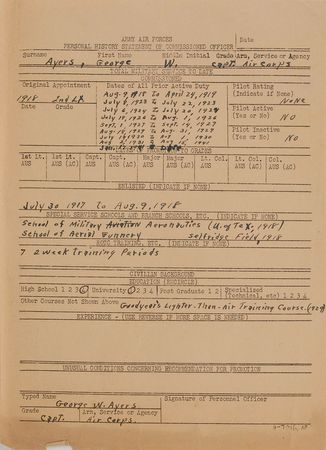 ARMY AIR FORCES
PERSONAL HISTORY STATEMENT OF COMMISSIONED OFFICER
Date
Surname First Name Middle Initial Grade Arm, Service or Agency
Ayers, George W. Capt. Air Corps
TOTAL MILITARY SERVICE TO DATE
COMMISSIONED
Original Appointment
Date Grade
1918 2nd Lt
Dates of All Prior Active Duty
Aug. 9, 1918 to April 24, 1919
July 8, 1923 to July 22, 1923
to
July 19, 1926 to Aug. 1, 1926
Pilot Rating
(Indicate if None)
None
Pilot Active
(Yes or No) No
Pilot Inactive
(Yes or No) No
1st Lt. AUS
1st Lt. AUS (AC)
Capt. AUS
Capt. AUS (AC)
Major AUS
Major AUS (AC)
Lt. Col. AUS
Lt. Col. AUS (AC)
Col.
ENLISTED (INDICATE IF NONE)
July 30 1917 to Aug. 9, 1918
SPECIAL SERVICE SCHOOLS AND BRANCH SCHOOLS, ETC. (INDICATE IF NONE)
School of Military Aviation Aeronautics (U. of Tex., 1918)
School of Aerial Gunnery Selfridge Field, 1918
ROTC TRAINING, ETC. (INDICATE IF NONE)
7 2 week Training Periods
CIVILIAN BACKGROUND
EDUCATION (ENCIRCLE)
High School 1 2 3 4 University 1 2 3 4 Post Graduate 1 2 Specialized (Technical, etc) 1 2 3 4
Other Courses Not Shown Above Goodyear's Lighter-Than-Air Training Course.
EXPERIENCE - (USE REVERSE IF MORE SPACE IS NEEDED)
UNUSUAL CONDITIONS CONCERNING RECOMMENDATION FOR PROMOTION
Typed Name
George W. Ayers
Signature of Personnel Officer
Grade Arm, Service or Agency
Capt. Air Corps.